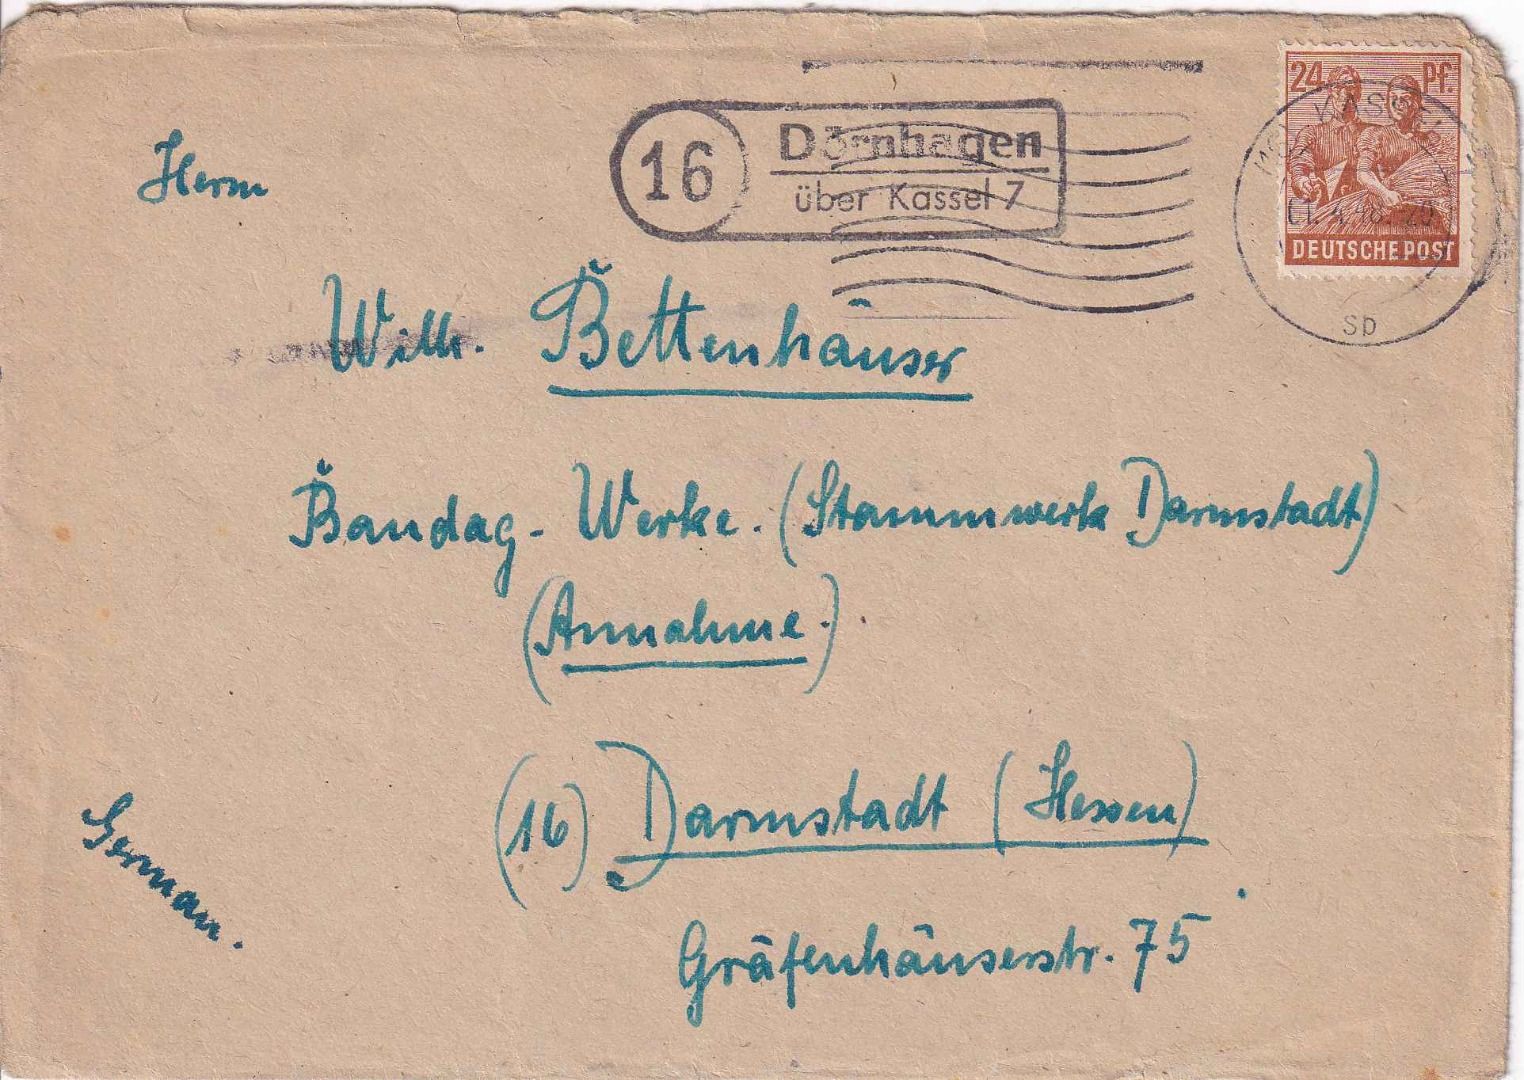 24 Pf.
DEUTSCHE POST
16
Dörnhagen
über Kassel 7
sp
Herrn
Wilh. Bettenhäuser
Bandag-Werke. (Stammwerk Darmstadt)
(Annahme.)
(16) Darmstadt (Hessen)
Gräfenhäuserstr. 75
German.